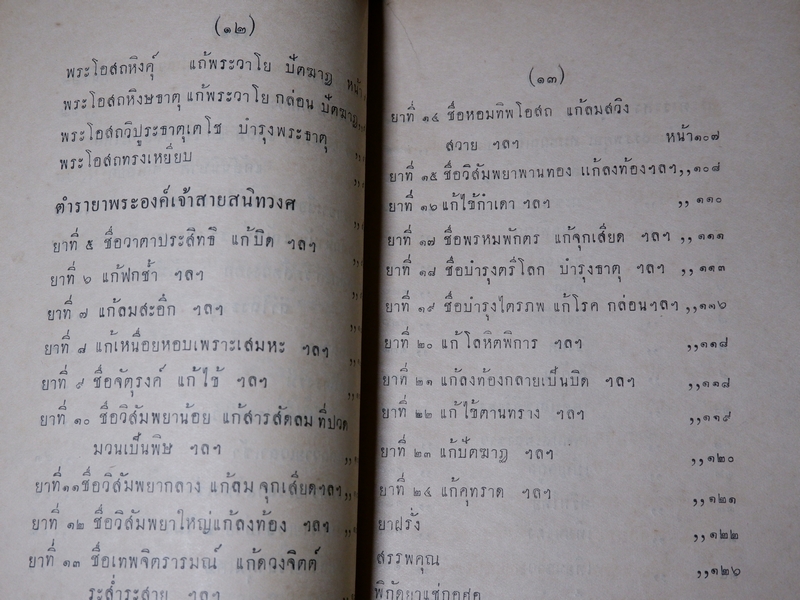 (๑๒)
พระโอสถหิงคุ์ แก้พระวาโย ปัตฆาฏ หน้า
พระโอสถหิงษธาตุ แก้พระวาโย กล่อน ปัตฆาฏ ,,
พระโอสถวิปูระธาตุเตโช บำรุงพระธาตุ ,,
พระโอสถทรงเหยียบ ,,
ตำรายาพระองค์เจ้าสายสนิทวงศ
ยาที่ ๕ ชื่อวาตาประสิทธิ แก้บิด ฯลฯ ,,
ยาที่ ๖ แก้ฟกช้ำ ฯลฯ ,,
ยาที่ ๗ แก้ลมสะอึก ฯลฯ ,,
ยาที่ ๘ แก้เหนื่อยหอบเพราะเสมหะ ฯลฯ ,,
ยาที่ ๙ ชื่อจัตุรงค์ แก้ไข้ ฯลฯ ,,
ยาที่ ๑๐ ชื่อวิสัมพยาน้อย แก้สารสัดลม ที่ปวด
มวนเป็นพิษ ฯลฯ ,,
ยาที่๑๑ชื่อวิสัมพยากลาง แก้ลม จุกเสียดฯลฯ,,
ยาที่ ๑๒ ชื่อวิสัมพยาใหญ่แก้ลงท้อง ฯลฯ ,,
ยาที่ ๑๓ ชื่อเทพจิตรารมณ์ แก้ดวงจิตต์
ระส่ำระสาย ฯลฯ ,,
(๑๓)
ยาที่ ๑๔ ชื่อหอมทิพโอสถ แก้ลมสวิง
สวาย ฯลฯ หน้า๑๐๗
ยาที่ ๑๕ ชื่อวิสัมพยาพานทอง แก้ลงท้องฯลฯ,,๑๐๘
ยาที่ ๑๖ แก้ไข้กำเดา ฯลฯ ,, ๑๑๐
ยาที่ ๑๗ ชื่อพรหมพักตร แก้จุกเสียด ฯลฯ ,, ๑๑๑
ยาที่ ๑๘ ชื่อบำรุงตรีโลก บำรุงธาตุ ฯลฯ ,, ๑๑๓
ยาที่ ๑๙ ชื่อบำรุงไตรภพ แก้โรค กล่อนฯลฯ ,,๑๑๖
ยาที่ ๒๐ แก้ โลหิตพิการ ฯลฯ ,,๑๑๘
ยาที่ ๒๑ แก้ลงท้องกลายเป็นบิด ฯลฯ ,,๑๑๘
ยาที่ ๒๒ แก้ ไข้ตานทราง ฯลฯ ,,๑๑๙
ยาที่ ๒๓ แก้ปัตฆาฏ ฯลฯ ,,๑๒๐
ยาที่ ๒๔ แก้คุทราด ฯลฯ ,,๑๒๑
ยาฝรั่ง ,,๑๒๒
สรรพคุณ ,,๑๒๖